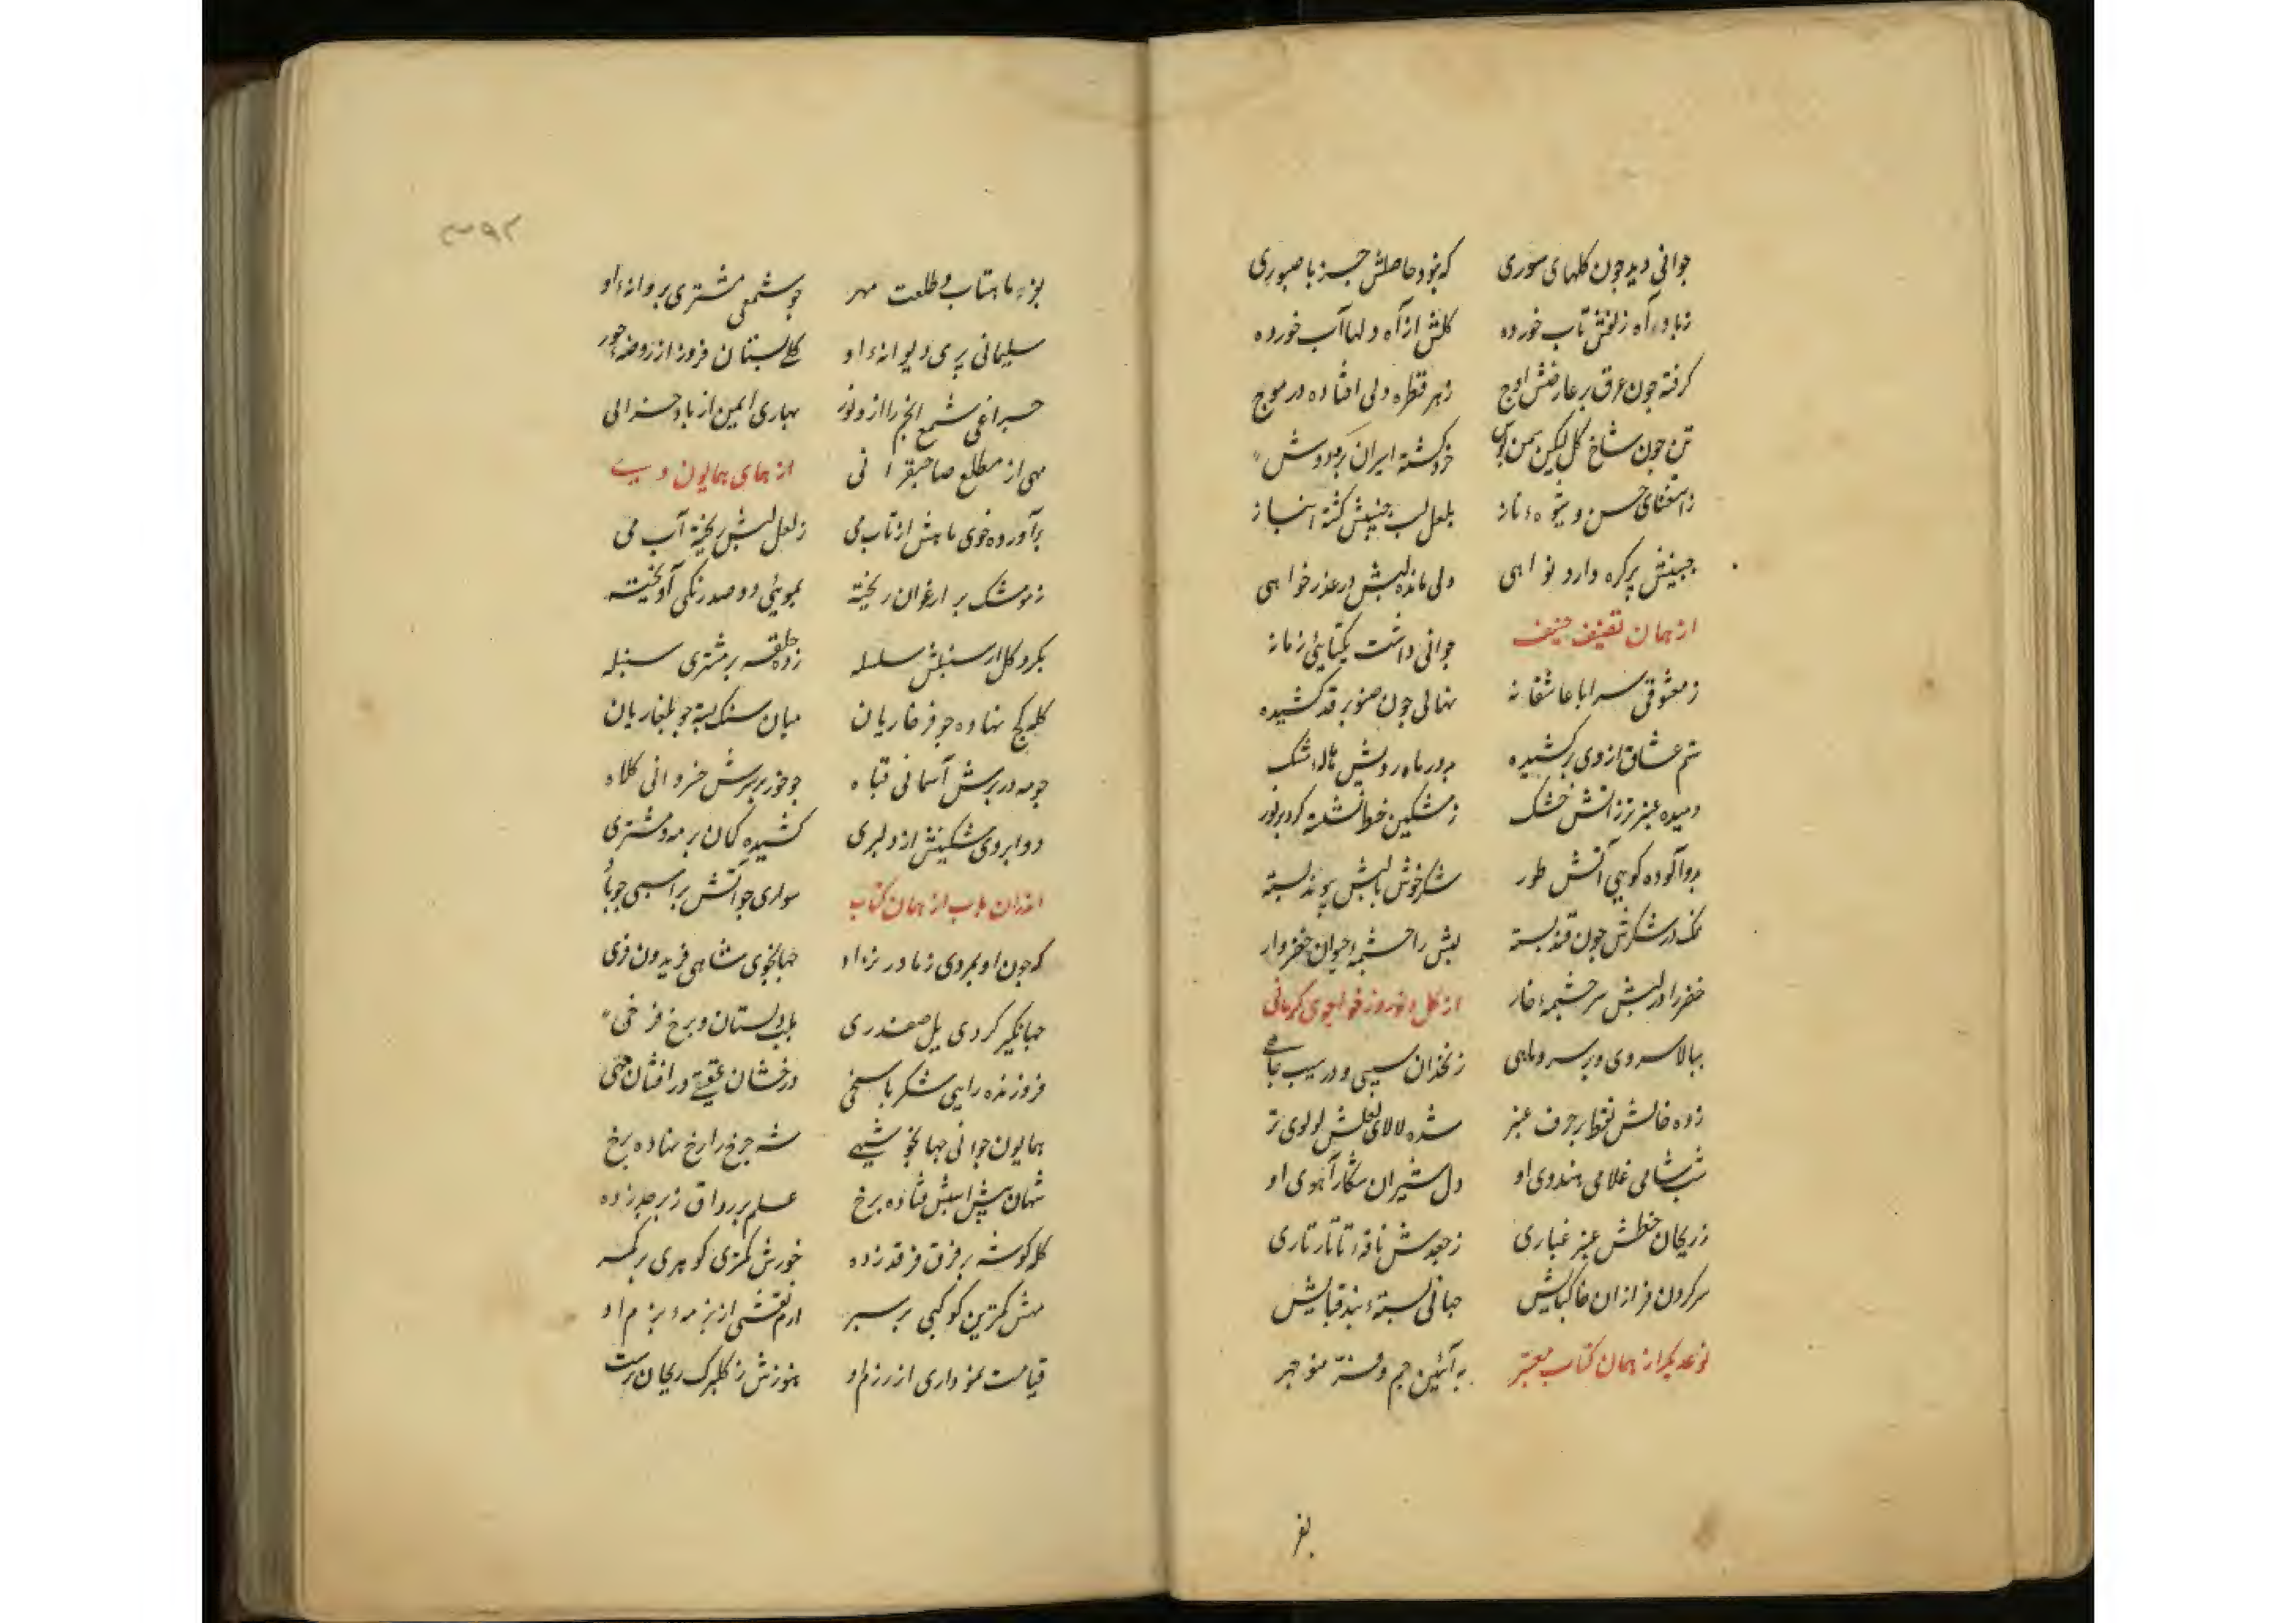 جوانی دید چون کلهای سوری که نبود حاصلش جز نا صبوری
ز باد آه زلفش تاب خورده کلش از آه دلها آب خورده
کرفته چون عرق بر عارضش اوج ز هر قطره دلی افتاده در موج
تن چون شاخ کل لیکن سمن پوش
ز استغنای حسن و شیوه ناز بلعل لب
جبینش پر کره دارد نواهی ولی مانده لبش در عذر خواهی
از همان تصنیف جوانی داشت یکتای زمانه
ز معشوقی سراپا عاشقانه نهالی چون صنوبر قد کشیده
ستم عشاق از وی بر کشیده بدور ماه رویش هاله مشک
دمیده عنبر تر ز آتش خشک ز مشکین خط نشسته کرد بر نور
بر آتش طور شکر خوش با لبش پیوند بسته
نمک در شکرش چون قند بسته لبش را چشمه حیوان خضر وار
خضر را در لبش سر چشمه خار از کل و نوروز خواجوی کرمانی
ببالا سروی و بر سرو ماهی ز نخدان سیبی و در سیب چاهی
زده خالش نقط بر حرف عنبر شده لالای لعلش لولوی تر
شب شامی غلامی هندوی او دل شیران شکار آهوی او
ز ریحان خطش عنبر غباری ز جعدش نافه تاتار تاری
سر کردن فرازان خاکپایش جهانی بسته بند قبایش
نوعدیکر از همان کتاب معتبر به آئین جم و فر منوچهر
بفر
۳۹۲
بفر ماهتاب و طلعت مهر چو شمعی مشتری پروانه او
سلیمانی پری دیوانه او کلی بستان فروز از روضه حور
چراغی شمع انجم را از و نور بهاری ایمن از باد خزانی
مهی از مطلع صاحبقرانی از همای همایون وی
بر آورده خوی ماهش از تاب می ز لعل لبش ریخته آب می
ز مو مشک بر ارغوان ریخته بموئی دو صد زنکی آویخته
بکرد کل از سنبلش سلسله زده حلقه بر مشتری سنبله
کله کج نهاده چو فرخاریان میان تنک بسته چو بلغاریان
چو مه در برش آسمانی قباه چو خور بر سرش خسروانی کلاه
دو ابروی مشکینش از دلبری کشیده کمان بر مه و مشتری
از همان کتاب سواری چو آتش بر اسبی چو باد
که چون او بمردی ز مادر نزاد جهانجوی شاهی فریدون فری
جهانکیر کردی یل صفدری بلب دلستان و برخ فرخی
فروزنده رایی شکر پاسخی درخشان عقیقی در افشان
همایون جوانی جهانجو شهی شه چرخ را رخ نهاده برخ
شهان پیش اسبش فتاده برخ علم بر رواق زبرجد زده
کله کوشه بر فرق فرقد زده خورش کمتری کوهری بر کمر
مهش کمترین کوکبی بر سپر ارم نقشی از بزمه بزم او
قیامت نموداری از رزم او هنوزش ز کلبرک ریحان نرست